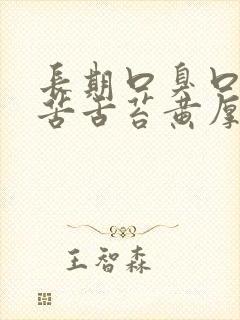 長期口臭口
苦舌苔黄厚
王智森